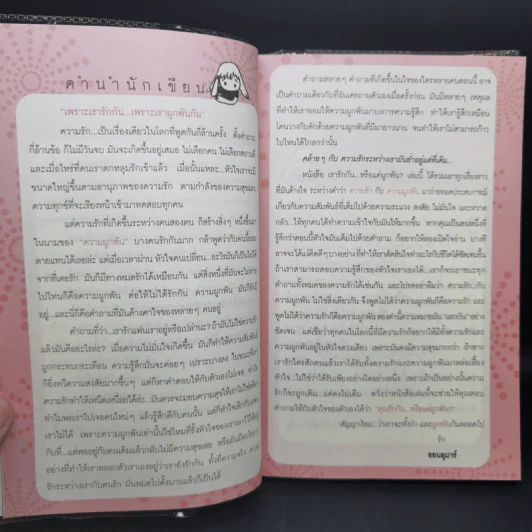 คำนำนักเขียน
"เพราะเรารักกัน...เพราะเราผูกพันกัน"
ความรัก...เป็นเรื่องเดียวในโลกที่พูดกันกี่ล้านครั้ง ตั้งคำถาม
กี่ล้านข้อ ก็ไม่มีวันจบ มันจะเกิดขึ้นอยู่เสมอ ไม่เลือกคน ไม่เลือกสถานที่
และเมื่อไหร่ที่คนเราตกหลุมรักเข้าแล้ว เมื่อนั้นแหละ...หัวใจเราจะมี
ขนาดใหญ่ขึ้นตามอานุภาพของความรัก ตามกำลังของความสุขและ
ความทุกข์ที่จะเรียงหน้าเข้ามาทดสอบทุกคน
แต่ความรักที่เกิดขึ้นระหว่างคนสองคน ก็สร้างสิ่งๆ หนึ่งขึ้นมา
ในนามของ "ความผูกพัน" บางคนรักกันมาก กล้าพูดว่ากับคนนี้ยอม
ตายแทนได้เลยล่ะ แต่เมื่อเวลาผ่าน หัวใจคนเปลี่ยน...อะไรมันก็เป็นไปได้
จากที่เคยรัก มันก็มีทางหมดรักได้เหมือนกัน แต่สิ่งหนึ่งที่มันจะไม่หาย
ไปไหนก็คือความผูกพัน ต่อให้ไม่ได้รักกัน ความผูกพัน มันก็ยังมี
อยู่...และนี่ก็คือคำถามที่มันค้างคาใจของหลายๆ คนอยู่
คำถามที่ว่า...เรารักแฟนเราอยู่หรือเปล่านะ? ถ้ามันไม่ใช่ความรัก
แล้วมันคืออะไรล่ะ? เมื่อความไม่มั่นใจเกิดขึ้น มันก็ทำให้ความสัมพันธ์
ถูกกระทบกระเทือน ความรู้สึกมันจะค่อยๆ เปราะบางลง ในขณะที่เรา
ก็ยิ่งทวีความสงสัยมากขึ้นๆ แต่ก็หาคำตอบให้กับตัวเองไม่เจอ ทำไม
ความรักทำให้หัวใจเหนื่อยได้ล่ะ...มันควรจะมอบความสุขให้เราไม่ใช่หรือ
ทำไมพอเราไปเจอคนใหม่ๆ แล้วรู้สึกดีกับคนนั้น แต่ก็ทำใจเลิกกับคนเก่า
เราไม่ได้ เพราะความผูกพันเท่านั้นใช่ไหมที่รั้งหัวใจของเราเอาไว้ให้อยู่
กับที่...แต่พออยู่กับคนเดิมแล้วกลับไม่มีความสุขเลย หรือมันมีอะไรบาง
อย่างที่ทำให้เราหลอกตัวเราเองอยู่ว่าเรายังรักกัน ทั้งที่ความจริง ความ
รักระหว่างเรากับคนรัก มันหมดไปตั้งนานแล้วก็เป็นได้
คำถามหลายๆ คำถามที่เกิดขึ้นในใจของใครหลายคนตอนนี้ อาจ
เป็นคำถามเดียวกับที่ฉันเคยถามตัวเองเมื่อครั้งก่อน มันมีหลายๆ เหตุผล
ที่ทำให้เรายอมให้ความผูกพันมาบงการความรู้สึก ทำให้เรารู้สึกเหมือน
โดนวางกับดักด้วยความผูกพันที่มีมายาวนาน จนทำให้เราไม่สามารถก้าว
ไปไหนได้ไกลกว่านั้น
คล้ายๆ กับ ความรักระหว่างเรามันย่ำอยู่แค่ที่เดิม...
หนังสือ เรารักกัน...หรือแค่ผูกพัน? เล่มนี้ ได้รวมเอาทุกเรื่องราว
ที่มันค้างใจ ระหว่างคำว่า ความรัก กับ ความผูกพัน มาถ่ายทอดประสบการณ์
เกี่ยวกับความสัมพันธ์ที่เต็มไปด้วยความระแวง สงสัย ไม่มั่นใจ และหวาด
กลัว...ให้ทุกคนได้ทำความเข้าใจกับมันให้มากขึ้น หากคุณเป็นคนหนึ่งที่
รู้สึกว่าตอนนี้หัวใจมันเต็มไปด้วยคำถาม ก็อยากให้ลองเปิดใจอ่าน บางที
อาจจะได้แง่คิดดีๆ บางอย่างที่ทำให้เราตัดสินใจทำอะไรกับชีวิตได้ชัดเจนขึ้น
ถ้าเราสามารถตอบความรู้สึกของหัวใจเราเองได้...เราก็จะเอาชนะทุก
คำถามทั้งหมดของความรักได้เช่นกัน และโปรดอย่าลืมว่า ความรัก...กับ
ความผูกพัน ไม่ใช่สิ่งเดียวกัน จึงพูดไม่ได้ว่าความผูกพันก็คือความรัก และ
พูดไม่ได้ว่าความรักก็คือความผูกพัน สองคำนี้ความหมายมัน "แตกต่าง" อย่าง
ชัดเจน แต่เชื่อว่าทุกคนในโลกนี้ที่มีความรักก็อยากให้มีทั้งความรักและ
ความผูกพันอยู่ในหัวใจดวงเดียว เพราะมันคงมีความสุขมากกว่า ถ้าหาก
เรารักใครสักคนแล้วเราได้รับทั้งความรักและความผูกพันมาหล่อเลี้ยง
หัวใจ ไม่ใช่ว่าได้รับเพียงอย่างใดอย่างหนึ่ง เพราะถ้าเป็นอย่างนั้นความ
รักก็จะถูกเติม...แต่คงไม่เต็ม หวังว่าหนังสือเล่มนี้จะช่วยให้คุณตอบ
คำถามให้กับหัวใจของตัวเองได้ว่า "คุณรักกัน...หรือแค่ผูกพัน"
สัญญาไหม...ว่าเราจะทั้งรัก และผูกพันกันตลอดไป
รัก
ออนอุมาร์